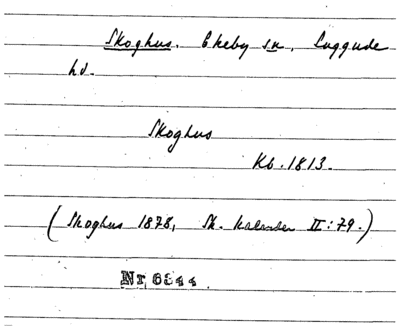 Skoghus. Ekeby sn, Luggude
hd.
Skoghus
Kb. 1813.
(Skoghus 1878, Sk. kalender II:79.)
Nr 6544